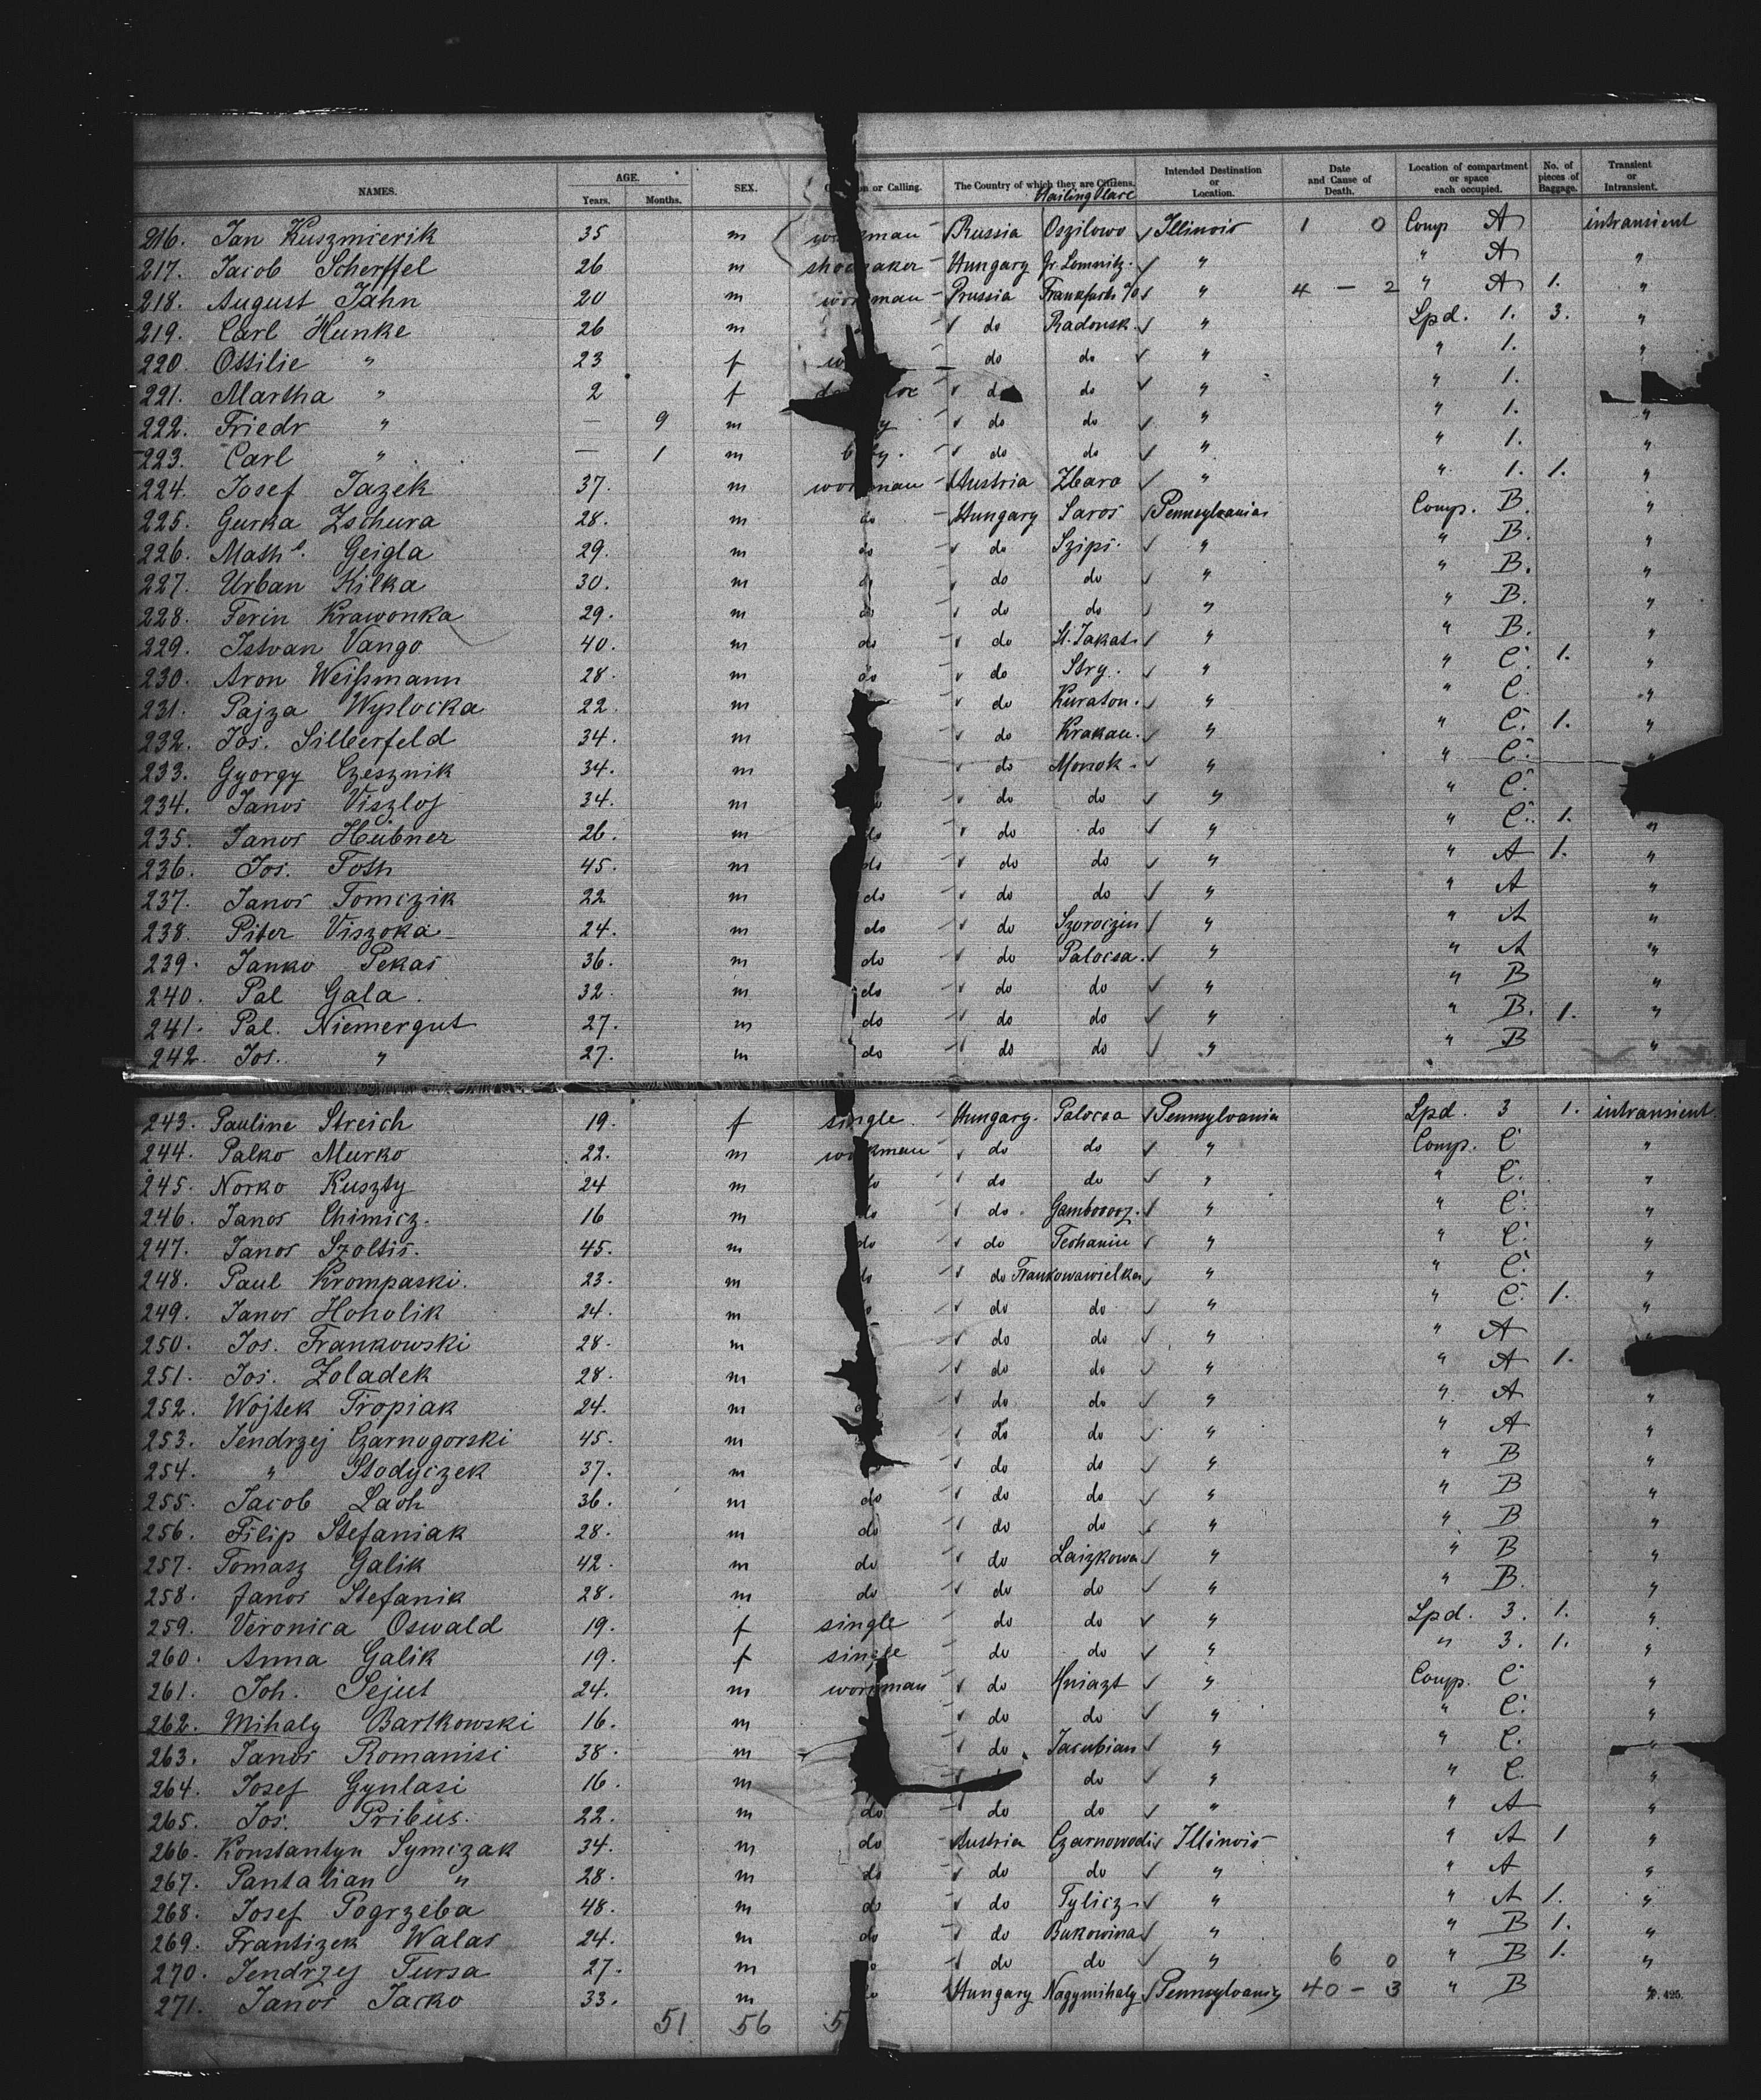 NAMES. AGE. Years. Months. SEX. or Calling. The Country of which they are Citizens. Hailing Place Intended Destination or Location. Date and Cause of Death. Location of compartment or space each occupied. No. of pieces of Baggage. Transient or Intransient.
216. Jan Kuszmierik 35 m workman Russia Oszilowo Illinois 1 0 Comp A intransient
217. Jacob Scherffel 26 m shoemaker Hungary Gr. Lomnitz. " " A "
218. August Jahn 20 m workman Prussia Frankfurth a/O " 4 — 2 " A 1. "
219. Carl Hunke 26 m do Radonsk. " Spd. 1. 3. "
220. Ottilie " 23 f do do " " 1. "
221. Martha " 2 f do do " " 1.
222. Friedr " — 9 m do do " " 1. "
223. Carl " — 1 m baby. do do " " 1. "
224. Josef Jazek 37. m workman Austria Zbara " " 1. 1. "
225. Gurka Zschura 28. m do Hungary Saros Pennsylvania Comp. B. "
226. Mathe. Geigla 29. m do do Szipi. " " B. "
227. Urban Kilka 30. m do do do " " B. "
228. Ferin Krawonka 29. m do do do " " B. "
229. Istvan Vango 40. m do do St. Jakat. " " B. "
230. Aron Weißmann 28. m do do Stry. " " C. 1. "
231. Pajza Wyslocka 22. m do Kuraton. " " C. "
232. Jos. Silberfeld 34. m do Krakau. " " C. 1. "
233. Gyorgy Czesznik 34. m do Monok. " " C. "
234. Janos Viszloj 34. m do do " " C.
235. Janos Hübner 26. m do do do " " C. 1. "
236. Jos. Toth 45. m do do do " " A 1. "
237. Janos Tomczik 22 m do do do " " A "
238. Piter Viszoka 24. m do do Szoroczin " " A "
239. Janko Pekar 36. m do do Palocsa. " " A "
240. Pal Gala. 32. m do do do " " B "
241. Pal. Niemergut 27. m do do do " " B. 1. "
242. Jos. " 27. m do do do " " B "
243. Pauline Streich 19. f single Hungary. Palocsa Pennsylvania Spd. 3 1. intransient
244. Palko Murko 22. m workman do do " Comp. C "
245. Norko Kuszty 24 m do do do " " C. "
246. Janos Chimicz. 16 m do do. Gamboooz. " " C. "
247. Janos Szoltis. 45. m do do Teohaniu " " C. "
248. Paul Krompaski. 23. m do do Frankowawielka " " C. "
249. Janos Hoholik 24. m do do " " C. 1. "
250. Jos. Frankowski 28. m do do " " A "
251. Jos. Zoladek 28. m do do " " A 1.
252. Wojtek Tropiak 24. m do do " " A "
253. Jendrzej Czarnogorski 45. m do do " " A "
254. " Stodyczek 37. m do do " " B "
255. Jacob Lach 36. m do do do " " B "
256. Filip Stefaniak 28. m do do do " " B "
257. Tomasz Galik 42. m do do Laizkowa " " B "
258. Janos Stefanik 28. m do do do " " B. "
259. Veronica Oswald 19. f single do do " Spd. 3. 1. "
260. Anna Galik 19. f single do do " " 3. 1. "
261. Joh. Sejut 24. m workman do Hniazt " Comp. C "
262. Mihaly Bartkowski 16. m do do " " C. "
263. Janos Romanisi 38. m do. Jacubian " " C. "
264. Josef Gyulasi 16. m do " " C. "
265. Jos. Pribus. 22. m do do do " " A "
266. Konstantyn Symczak 34. m do Austria Czarnowodi Illinois " A 1 "
267. Pantalian " 28. m do do do " " A "
268. Josef Pogrzeba 48. m do do Tylicz " " A 1. "
269. Frantizek Walas 24. m do do Bukowina " " B 1. "
270. Jendrzej Tursa 27. m do do " 6 0 " B 1. "
271. Janos Jacko 33. m Hungary Nagymihaly Pennsylvania 40 — 3 " B "
51 56 5